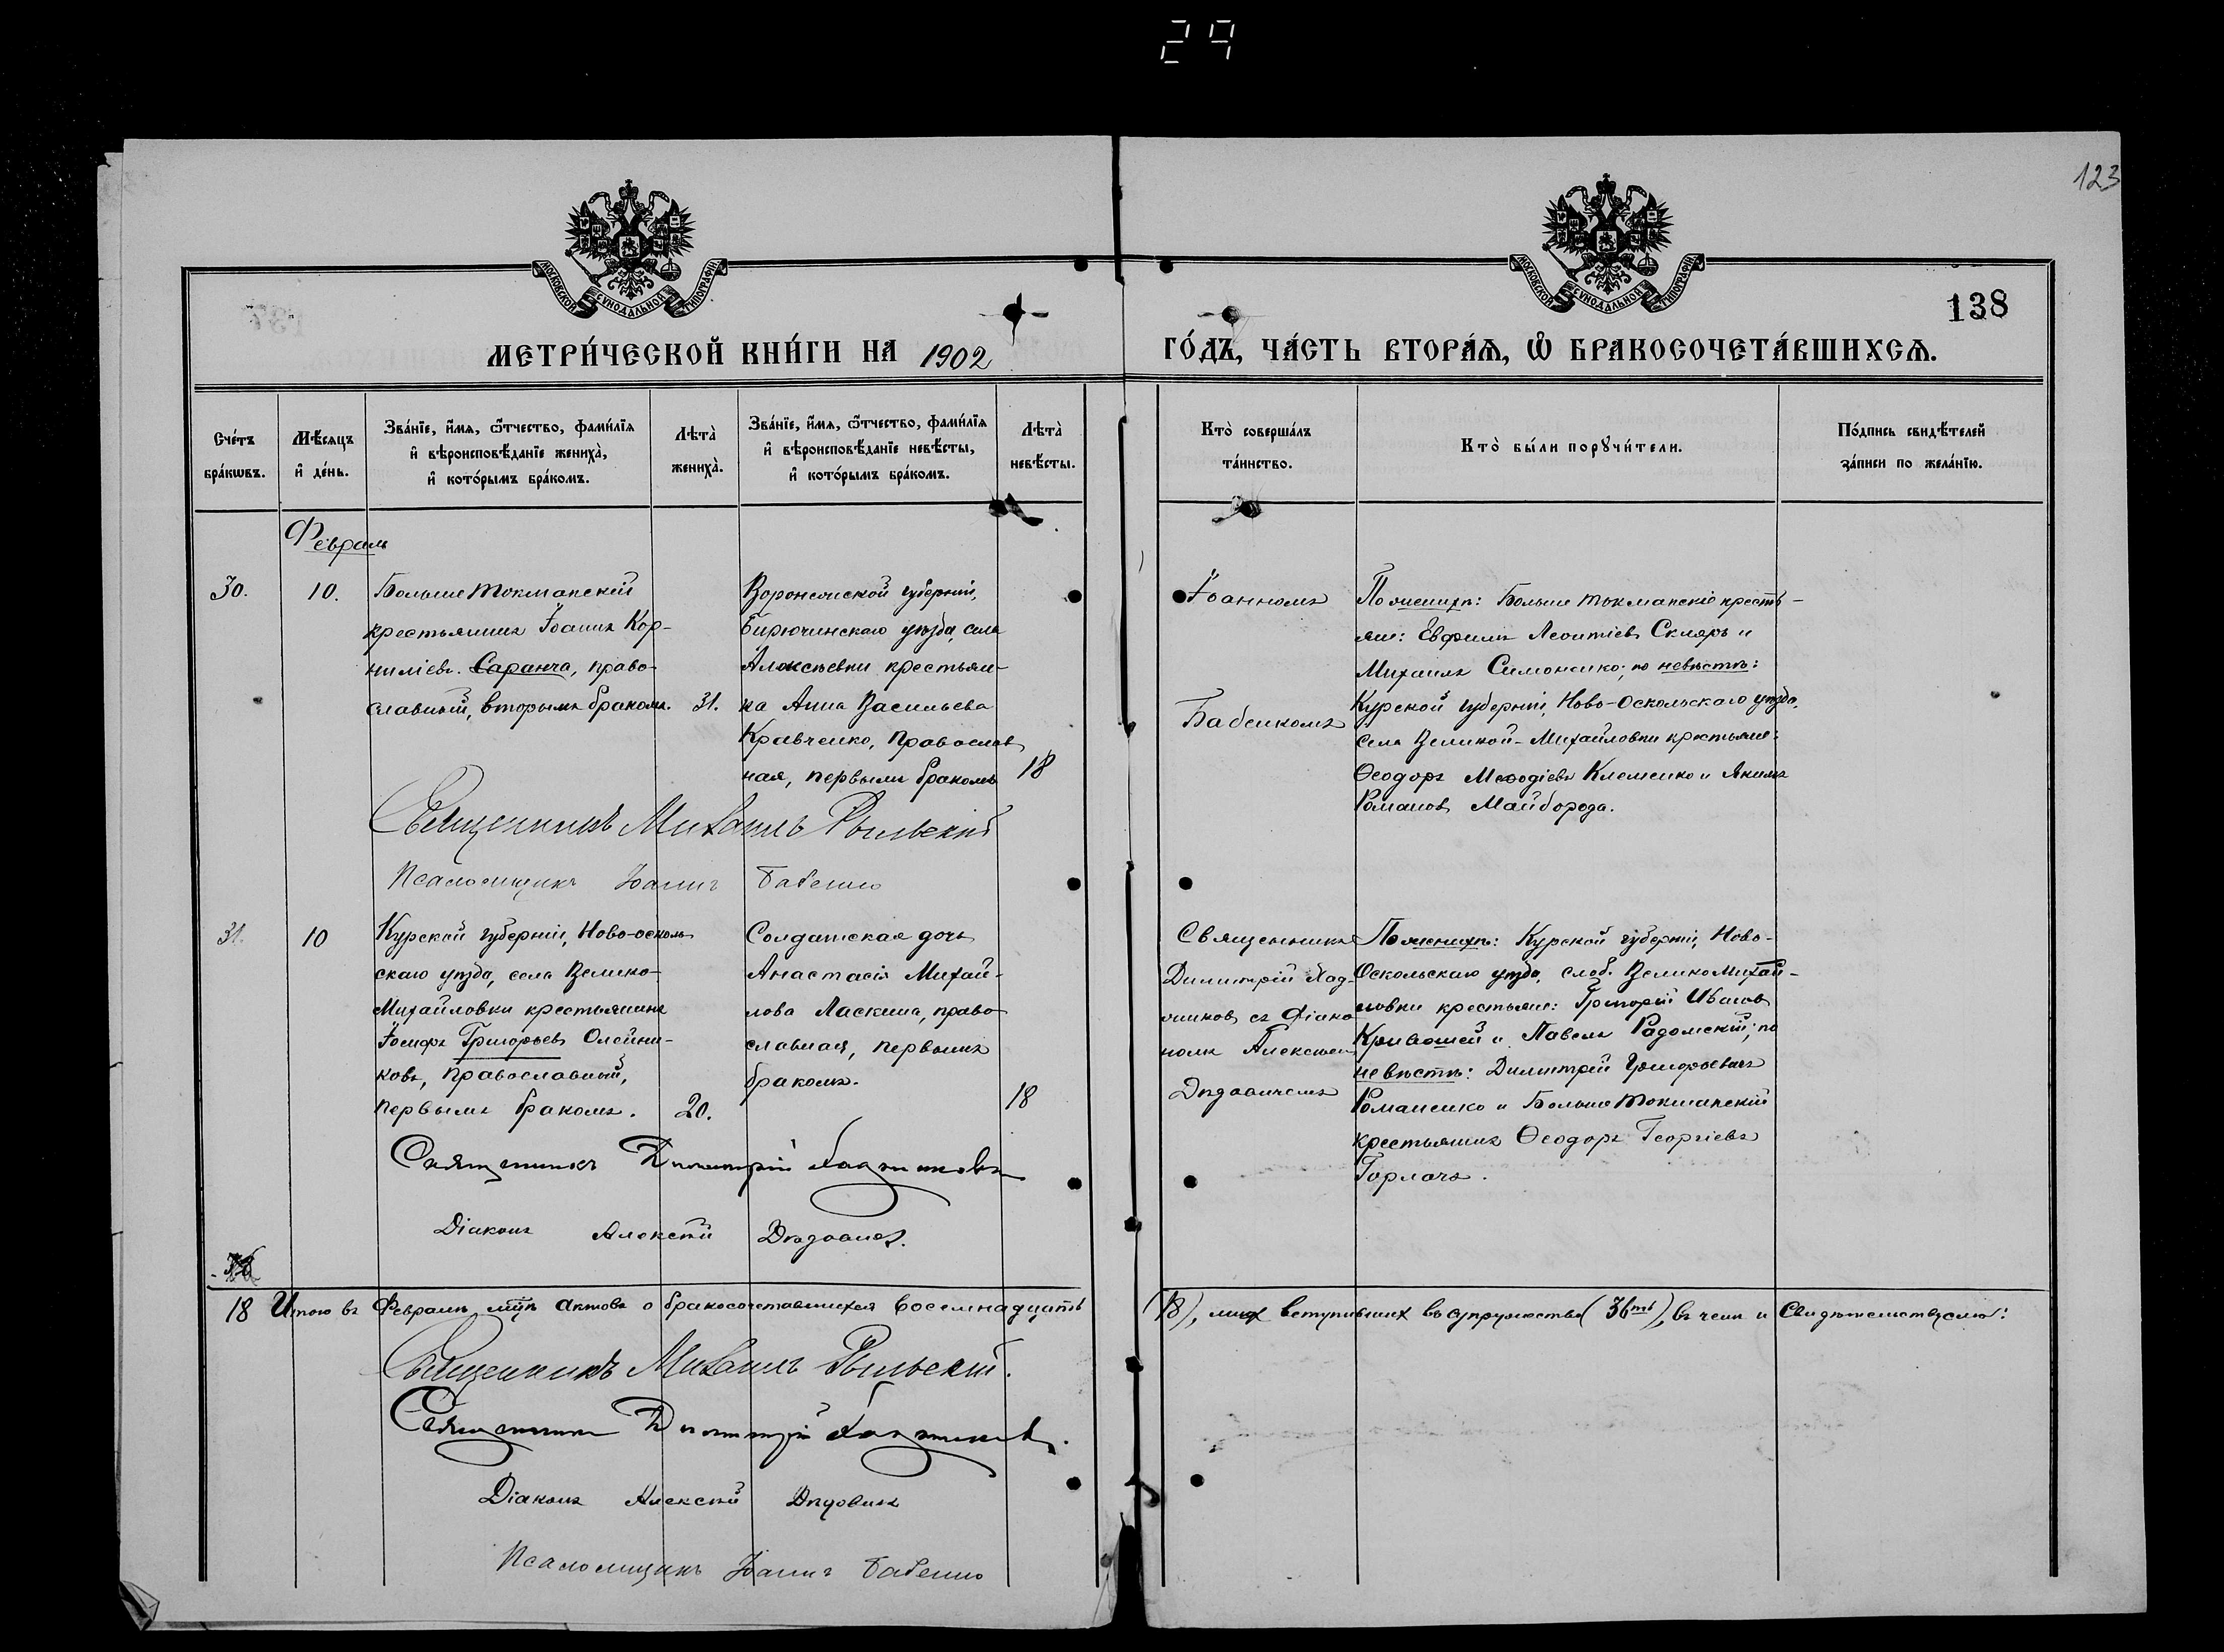 29
123
МОСКОВСКОЙ СѴНОДАЛЬНОЙ ТИПОГРАФІИ
МОСКОВСКОЙ СѴНОДАЛЬНОЙ ТИПОГРАФІИ
138
МЕТРИ́ЧЕСКОЙ КНИ́ГИ НА 1902
ГО́ДЪ, ЧА́СТЬ ВТОРА́Я, Ѽ БРАКОСОЧЕТА́ВШИХСЯ.
Сче́тъ
бра́кѡвъ.
Мѣ́сяцъ
и҆ де́нь.
Зва́нїе, и҆́мя, ѻ҆́тчество, фами́лїя
и҆ вѣроисповѣ́данїе жениха̀,
и҆ кото́рымъ бра́комъ.
Лѣта̀
жениха̀.
Зва́нїе, и҆́мя, ѻ҆́тчество, фами́лїя
и҆ вѣроисповѣ́данїе невѣ́сты,
и҆ кото́рымъ бра́комъ.
Лѣта̀
невѣ́сты.
Кто̀ соверша́лъ
та́инство.
Кто̀ бы́ли порꙋчи́тели.
По́дпись свидѣ́телей
за́писи по жела́нїю.
Февраль
30.
10.
Больше Токмакскій
крестьянинъ Іоаннъ Кор-
ниліевъ Саранча, право-
славный, вторымъ бракомъ.
31.
Воронежской губерніи,
Бирюченскаго уѣзда, села
Алексѣевки крестьян-
ка Анна Васильева
Кравченко, Православ
ная, первымъ бракомъ
18
Іоанномъ
Бабенкомъ
По женихѣ: Больше Токмакскіе кресть-
яне: Евфимъ Леонтіевъ Скляръ и
Михаилъ Симоненко; по невѣстѣ:
Курской губерніи, Ново-Оскольскаго уѣзда,
села Великой-Михайловки крестьяне:
Ѳеодоръ Меѳодіевъ Клеменко и Якимъ
Романовъ Майборода.
Священникъ Михаилъ Рыльскій
Псаломщикъ Іоаннъ Бабенко
31.
10
Курской губерніи, Ново-осколь
скаго уѣзда, села Велико-
Михайловки крестьянинъ
Іосифъ Григорьевъ Олейни-
ковъ, Православный,
первымъ бракомъ.
20.
Солдатская дочь
Анастасія Михай-
лова Ласкина, право
славная, первымъ
бракомъ.
18
Священникъ
Димитрій
съ Діако
номъ Алексѣем
Дѣдовичемъ
По женихѣ: Курской губерніи, Ново-
Оскольскаго уѣзда, слоб. Велико Михай-
ловки крестьяне: Григорій Ивановъ
Кривошей и Павелъ Радомскій; по
невѣстѣ: Димитрій Григорьевичъ
Романенко и Больше Токмакскій
крестьянинъ Ѳеодоръ Георгіевъ
Горлачъ.
Священникъ Димитрій
Діаконъ Алексѣй
18 Итого въ Февралѣ мцѣ актовъ о бракосочетавшихся восемнадцать
(18), лицъ вступившихъ въ супружество (36ть), въ чемъ и свидѣтельствуемъ:
Священникъ Михаилъ Рыльскій.
Священникъ Димитрій
Діаконъ Алексѣй
Псаломщикъ Іоаннъ Бабенко